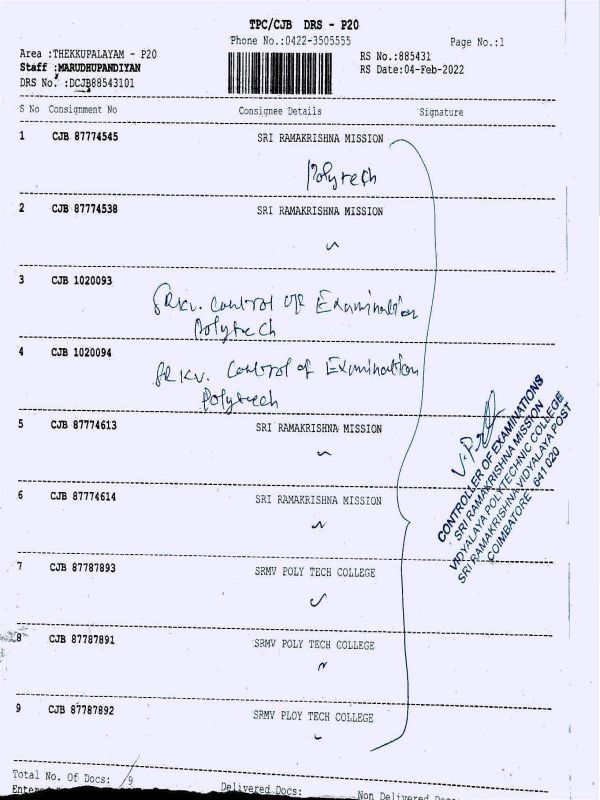 TPC/CJB DRS - P20
Phone No.:0422-3505555
Page No.:1
Area :THEKKUPALAYAM - P20
RS No.:885431
Staff :MARUDHUPANDIYAN
RS Date:04-Feb-2022
DRS No. :DCJB88543101
S No Consignment No Consignee Details Signature
1 CJB 87774545 SRI RAMAKRISHNA MISSION
Polytech
2 CJB 87774538 SRI RAMAKRISHNA MISSION
3 CJB 1020093
SRKV. Control of Examination
Polytech
4 CJB 1020094
SRKV. Control of Examination
Polytech
5 CJB 87774613 SRI RAMAKRISHNA MISSION
6 CJB 87774614 SRI RAMAKRISHNA MISSION
7 CJB 87787893 SRMV POLY TECH COLLEGE
8 CJB 87787891 SRMV POLY TECH COLLEGE
9 CJB 87787892 SRMV PLOY TECH COLLEGE
CONTROLLER OF EXAMINATIONS
SRI RAMAKRISHNA MISSION
VIDYALAYA POLYTECHNIC COLLEGE
SRI RAMAKRISHNA VIDYALAYA POST
COIMBATORE - 641 020
Total No. Of Docs: 9
Delivered Docs: Non Delivered Docs